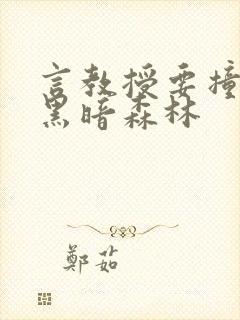 言教授要撞
黑暗森林
鄭茹